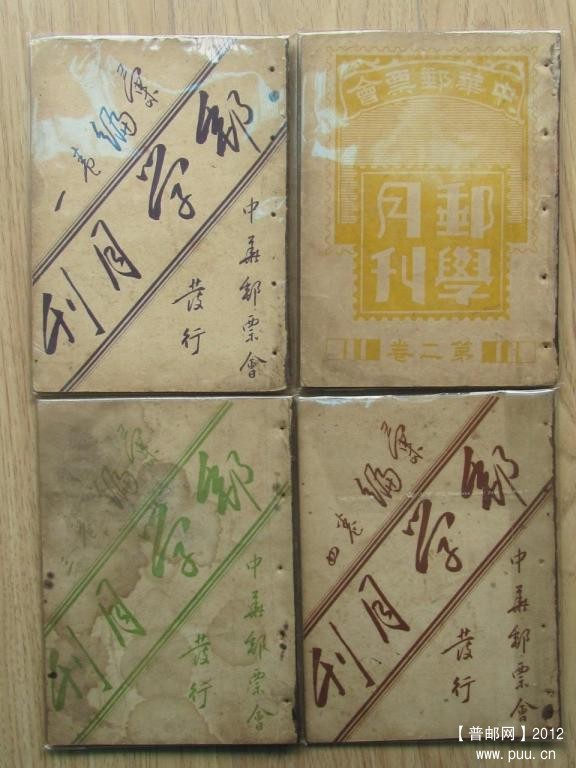 彙編卷一
郵学月刊
中華郵票會
發行
中華郵票會
郵學
月刊
第二卷
彙編卷三
郵学月刊
中華郵票會
發行
彙編卷四
郵学月刊
中華郵票會
發行
【普邮网】2012
www.puu.cn